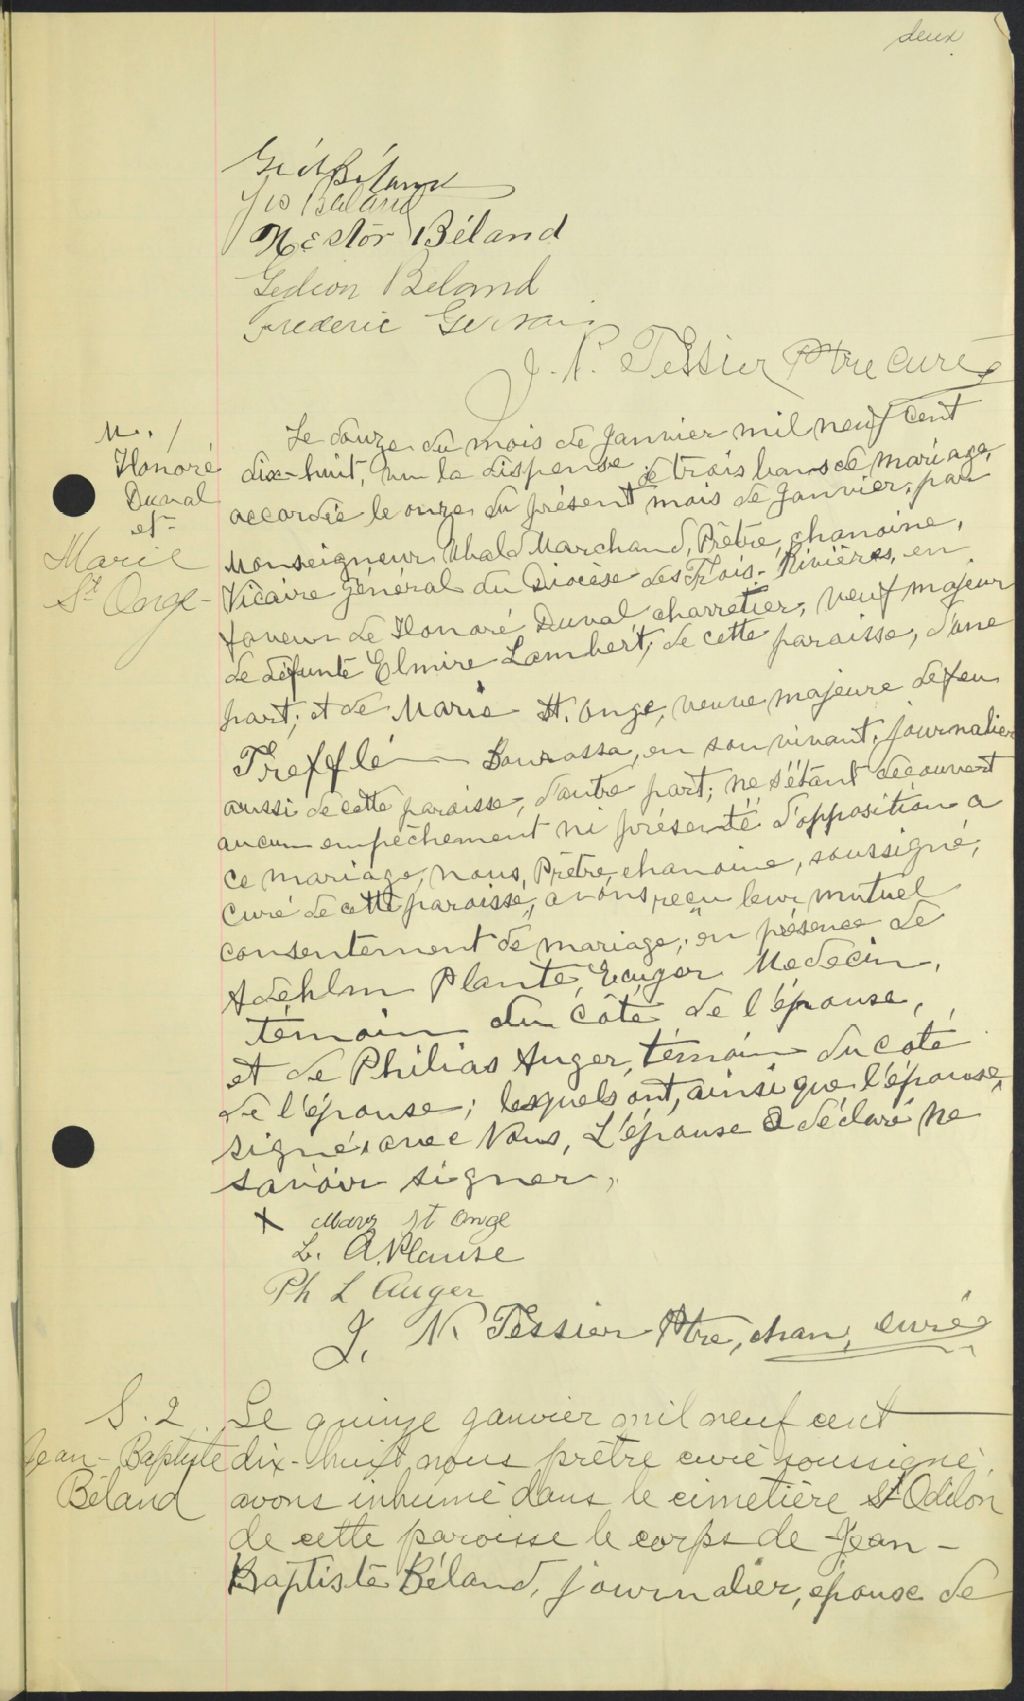 deux
Géd Béland
Jos Béland
Nestor Béland
Gedeon Beland
Frederic Gervais
J. N. Tessier Ptre curé
M. 1
Honoré
Duval
et
Marie
St Onge
Le douze du mois de Janvier mil neuf cent
dix-huit, vu la dispense de trois bans de mariage,
accordée le onze du présent mois de Janvier, par
Monseigneur Ubald Marchand, Prêtre, chanoine,
Vicaire Général du Diocèse des Trois-Rivières, en
faveur de Honoré Duval charretier, veuf majeur
de défunte Elmire Lambert, de cette paroisse, d'une
part; et de Marie St. Onge, veuve majeure de feu
Trefflé Bourassa, en son vivant, journalier
aussi de cette paroisse, d'autre part; ne s'étant découvert
aucun empêchement ni présenté d'opposition a
ce mariage, nous, Prêtre, chanoine, soussigné,
curé de cette paroisse, avons reçu leur mutuel
consentement de mariage, en présence de
Plante, Médecin,
témoin du côté de l'épouse,
et de Philias Auger, témoin du coté
de l'épouse; lesquels ont, ainsi que l'épouse,
signé avec Nous, L'épouse a déclaré ne
savoir signer,
X Mary St Onge
L. A. Plante
Ph L Auger
J. N. Tessier Ptre, chan, curé
S. 2
Jean-Baptiste
Béland
Le quinze janvier mil neuf cent
dix-huit, nous prêtre curé soussigné,
avons inhumé dans le cimetière St Odilon
de cette paroisse le corps de Jean-
Baptiste Béland, journalier, épouse de